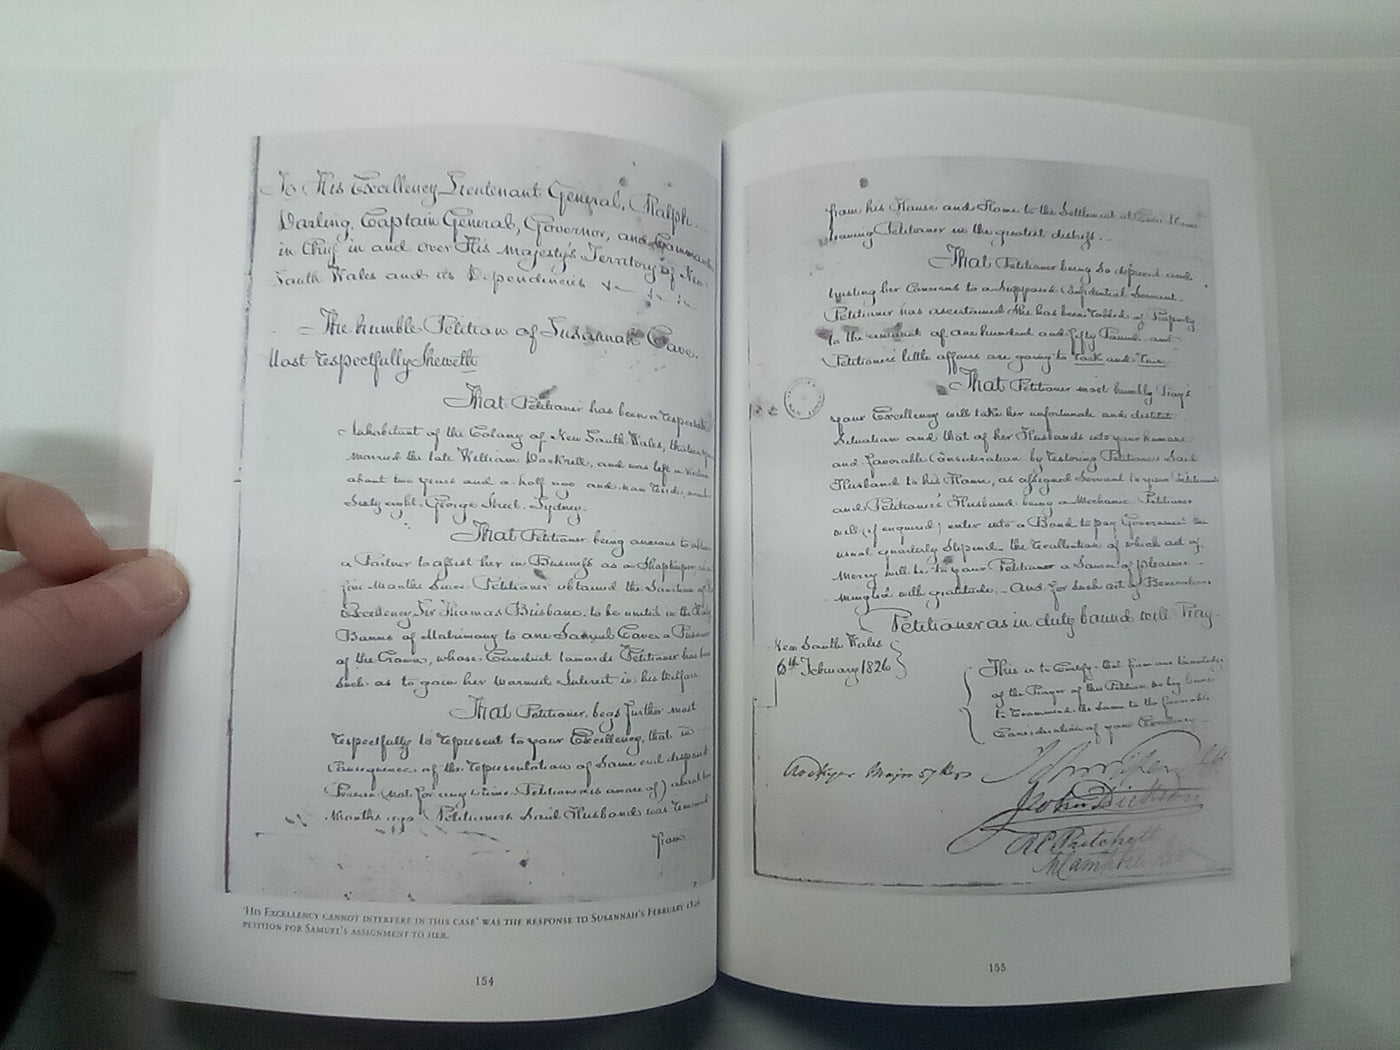 To His Excellency Lieutenant General, Ralph
Darling, Captain General, Governor, and Comman
in Chief in and over His Majesty's Territory of New
South Wales and its Dependencies
The humble Petition of Susannah Cave.
Most respectfully Sheweth
That Petitioner has been a respecta
Inhabitant of the Colony of New South Wales,
married the late William Dockrell, and was left a Widow
about two years and a half ago and now resides
Sixty eight George Street. Sydney.
That Petitioner being anxious to
a Partner to assist her in Business as a Shopkeeper,
five Months Since Petitioner obtained the Sanction of
Excellency Sir Thomas Brisbane, to be united in the
Banns of Matrimony to one Samuel Cave a Prisoner
of the Crown, whose Conduct towards Petitioner has been
such as to gain her warmest Interest in his Welfare
That Petitioner begs further most
respectfully to represent to your Excellency, that in
Consequence of the representation of Some evil disposed
Person (not for any Crime Petitioner is aware of) about
Months ago Petitioners Said Husband was removed
from
from his House and Home to the Settlement at
leaving Petitioner in the greatest distress.
That Petitioner being So deprived and
trusting her Concerns to a Supposed Confidential Servant
Petitioner has ascertained She has been robbed of Property
to the amount of one hundred and fifty Pounds and
Petitioners little affairs are going to
That Petitioner most humbly Prays
your Excellency will take her unfortunate and destitute
Situation and that of her Husbands into your humane
and favorable Consideration by restoring Petitioners Said
Husband to his Home, as assigned Servant to your Petitioner
and Petitioner's Husband being a Mechanic Petitioner
will (if required) enter into a Bond to pay Government the
usual quarterly Stipend the recollection of which act of
Mercy will be to your Petitioner a Source of pleasure
mingled with gratitude. And for Such act of Benevolence
Petitioner as in duty bound will Pray.
New South Wales
6th February 1826
This is to Certify that from our knowledge
of the Prayer of this Petition we beg leave
to recommend the Same to the favorable
Consideration of your Excellency
Major 57 Regt
John Dickson
R C Pritchett
'His Excellency cannot interfere in this case' was the response to Susannah's February 1826
petition for Samuel's assignment to her.
154
155